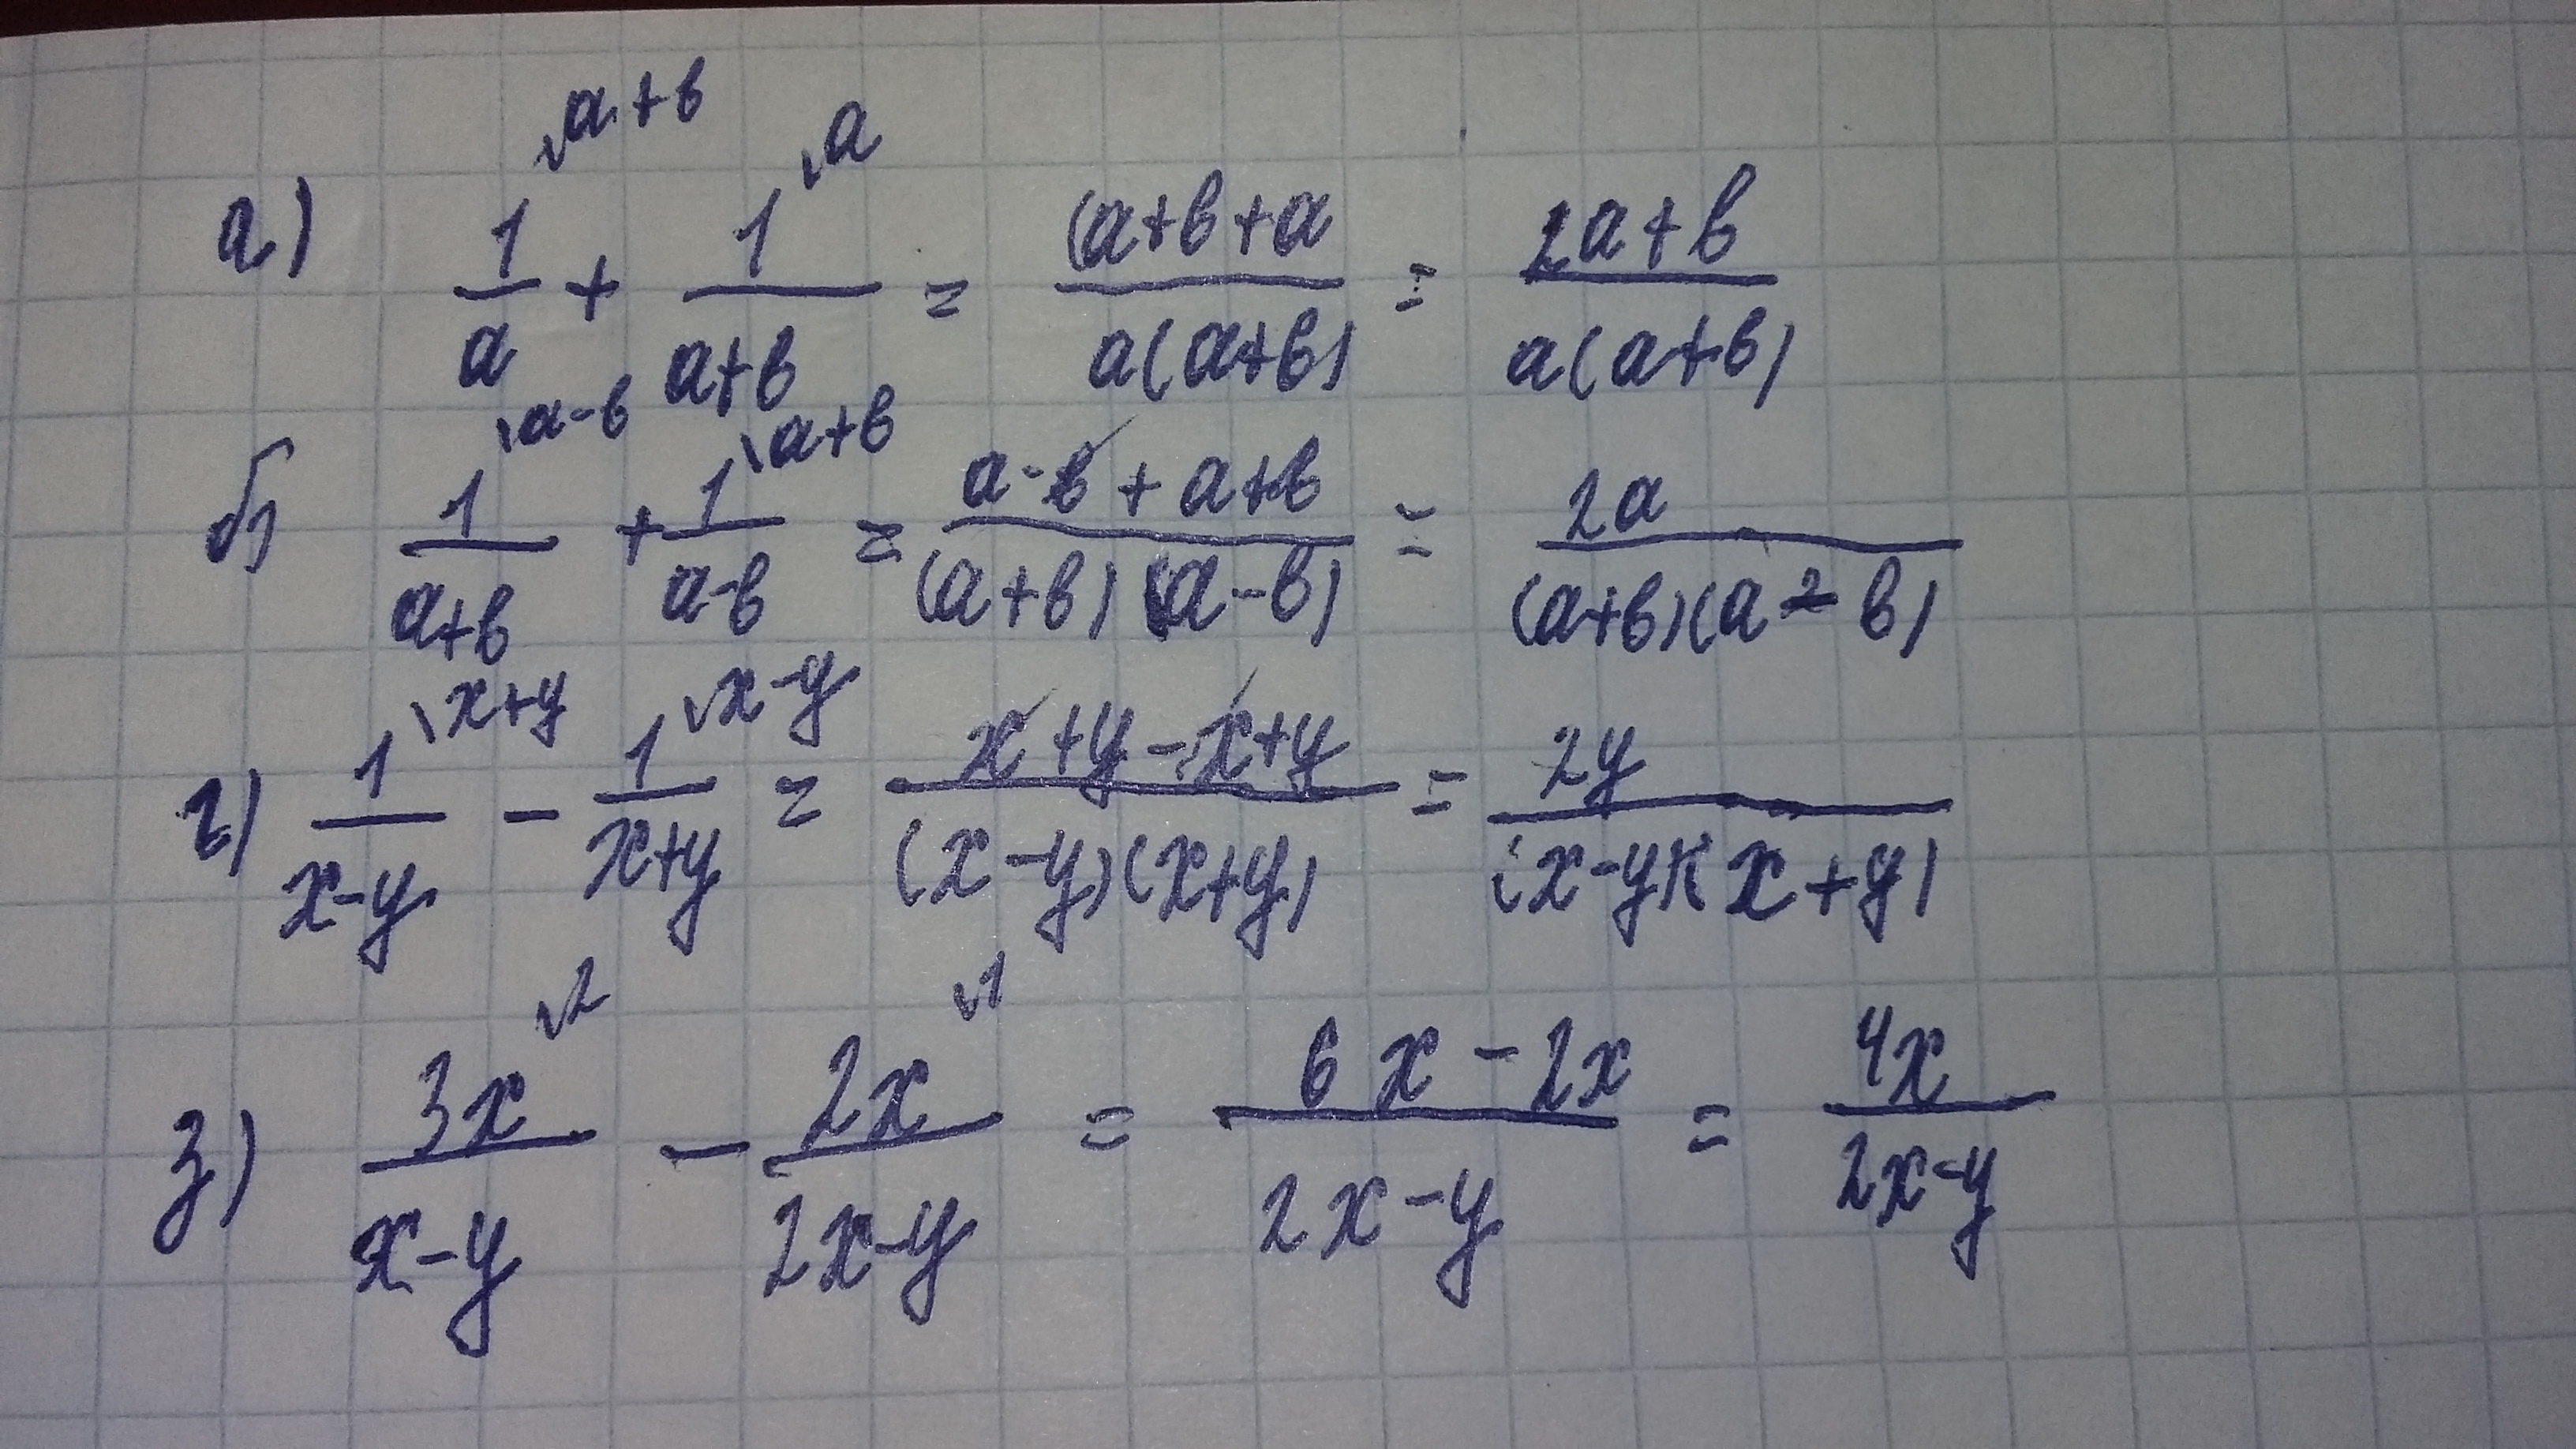 а) 1/a \a+b + 1/(a+b) \a = (a+b+a/a(a+b) = 2a+b/a(a+b)
б) 1/(a+b) \a-b + 1/(a-b) \a+b = a-b+a+b/(a+b)(a-b) = 2a/(a+b)(a-b)
г) 1/(x-y) \x+y - 1/(x+y) \x-y = x+y-x+y/(x-y)(x+y) = 2y/(x-y)(x+y)
з) 3x/(x-y) \2 - 2x/(2x-y) \1 = 6x-2x/(2x-y) = 4x/(2x-y)